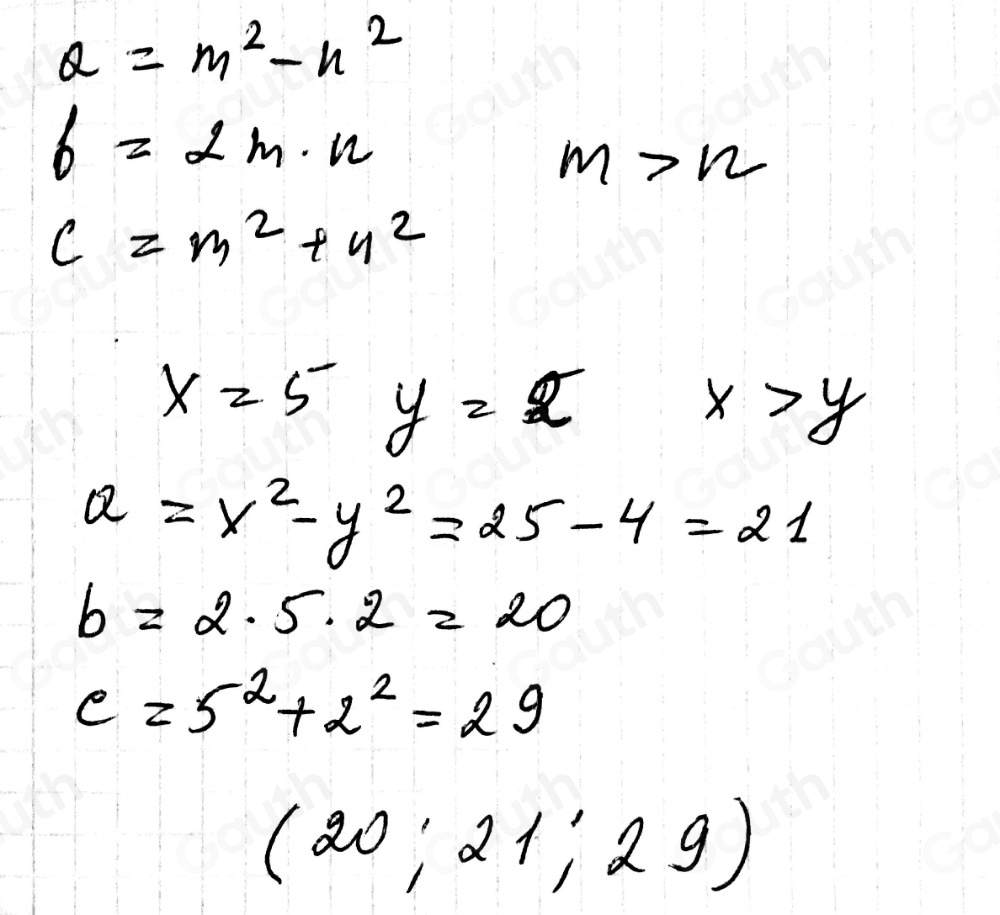 a = m² - n²
b = 2m · n
m > n
c = m² + n²
x = 5 y = 2 x > y
a = x² - y² = 25 - 4 = 21
b = 2 · 5 · 2 = 20
c = 5² + 2² = 29
(20; 21; 29)